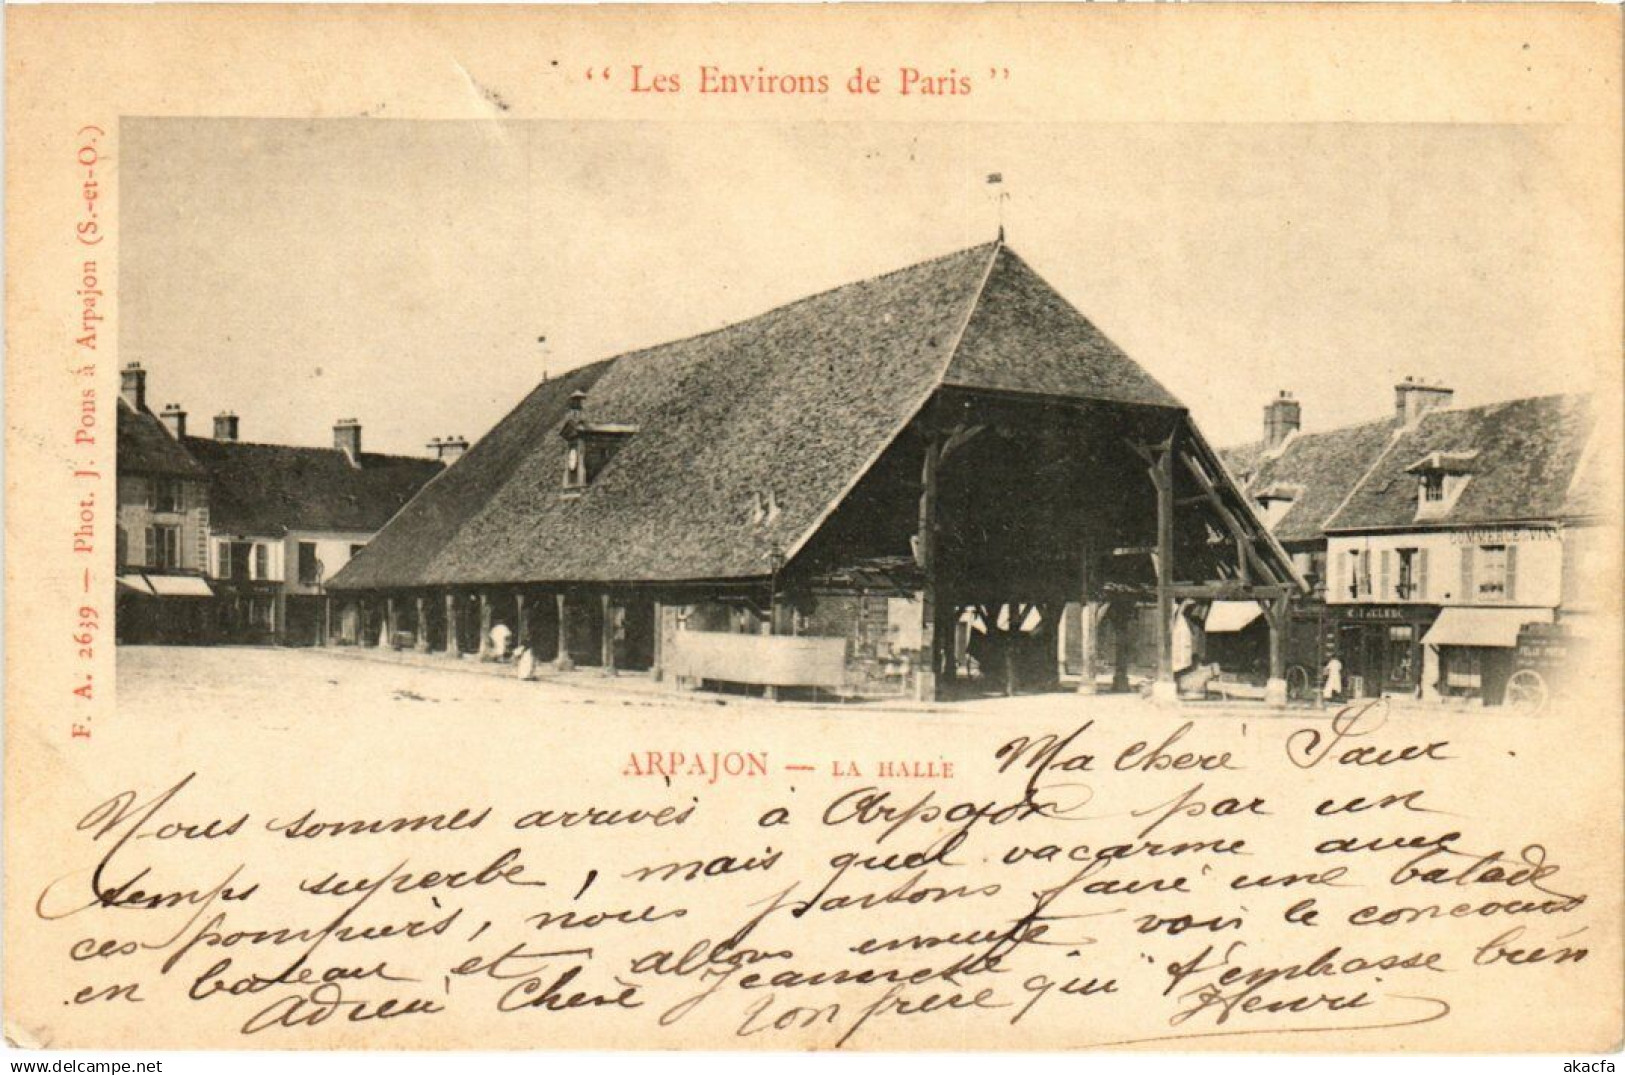 “ Les Environs de Paris ”
F. A. 2639 — Phot. J. Pons à Arpajon (S.-et-O.)
COMMERCE VIN
ARPAJON — LA HALLE
Ma Cheré Sœur
Nous sommes arrivés à Arpajon par un
temps superbe, mais quel vacarme avec
ces pompiers, nous partons faire une balade
en bateau et allons ensuite voir le concours
Adieu Chère Jeannette
ton frère qui t'embrasse bien
Henri
akacfa
delcampe.net